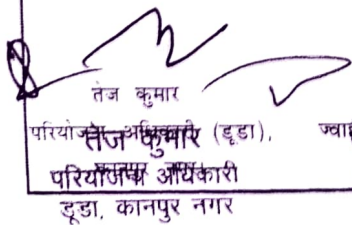 तेज कुमार
परियोजना अधिकारी (डूडा), ज्वा
तेज कुमार
कानपुर नगर
परियोजना अधिकारी
डूडा, कानपुर नगर